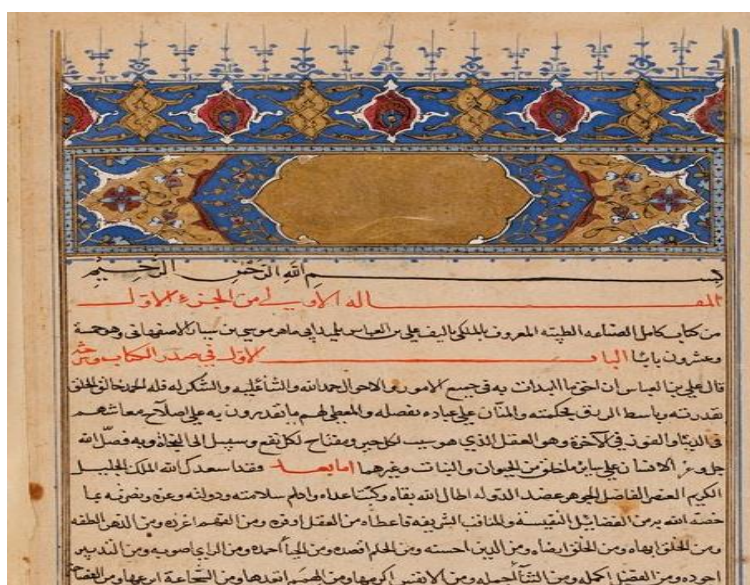 بسم الله الرحمن الرحيم
المقاله الاولى من الجزء الاول
من كتاب كامل الصناعه الطبيه المعروف بالملكى تاليف على بن العباس تلميذ ابى ماهر موسى بن سيار الاصفهانى وهو خمسة
وعشرون بابا الباب الاول فى صدر الكتاب
قال على بن العباس ان احق ما ابتدات به فى جميع الامور والاحوال حمد الله والثنا عليه والشكر له فله الحمد خالق الخلق
بقدرته وباسط الرزق بحكمته والمنان على عباده بفضله والمعطى لهم ما يقدرون به على اصلاح معاشهم
فى الدنيا والفوز فى الآخرة وهو العقل الذى هو سبب لكل خير ومفتاح لكل نفع وسبيل الى النجاة وبه فضل الله
جل وعز الانسان على ساير ما خلق من الحيوان والنبات وغيرهما اما بعد فقد اسعدك الله الملك الجليل
الكريم العنصر الفاضل الجوهر عضد الدوله اطال الله بقاه وكبت اعداه وادام سلامته ودولته وعزه ونصرته بما
خصه الله به من الفضايل النفيسه والمناقب الشريفه فاعطاه من العقل اوفره ومن الفهم اغزره ومن الذهن الطفه
ومن الخلق ابهاه ومن الخلق ارضاه ومن الدين احسنه ومن الحلم اقصده ومن الراى اصوبه ومن التدبير
اجوده من الفضل اكمله ومن الثنا اجمله ومن الانفس اكرمها ومن الهمم ومن الشجاعة